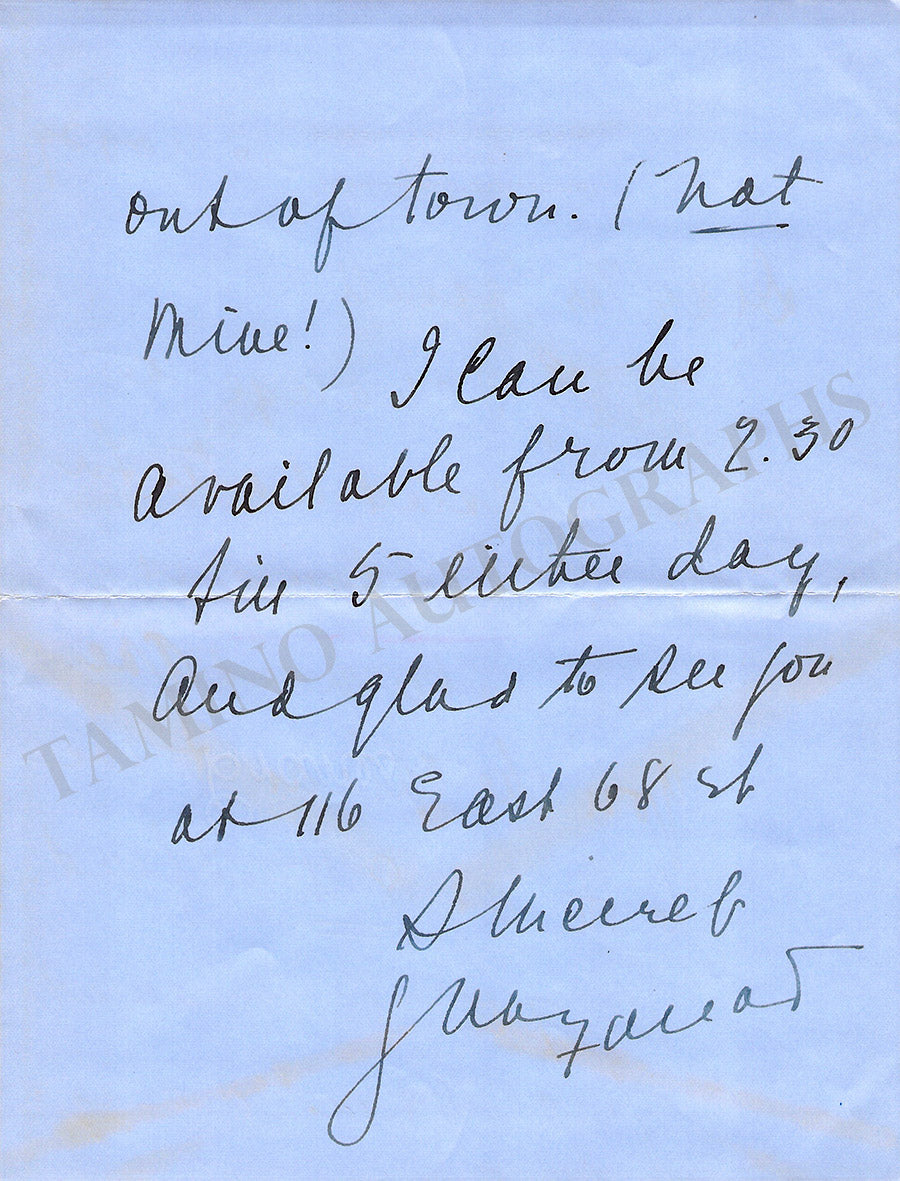 out of town. (Not
Mine!) I can be
available from 2.30
till 5 either day,
and glad to see you
at 116 East 68 St
Sincerely
TAMINO AUTOGRAPHS